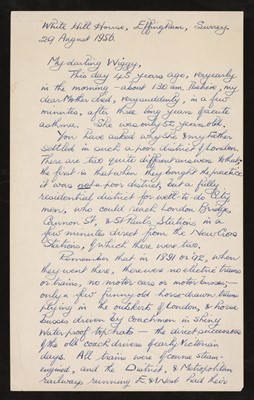 White Hill House, Effingham, Surrey.
29 August 1956.
My darling Wiggy,
This day 45 years ago, very early
in the morning – about 1.30 a.m. I believe, my
dear Mother died, very suddenly, in a few
minutes, after three long years of acute
asthma. She was only 52 years old.
You have asked why She & my Father
settled in such a poor district of London.
There are two quite different answers to that;
the first is that when they bought the practice
it was not a poor district, but a fully
residential district for well-to-do City
men, who could reach London Bridge,
Cannon St, & St Pauls Stations in a
few minutes direct from the New Cross
Stations, of which there were two.
Remember that in 1891 or 92, when
they went there, there were no electric trains
or trams, no motor cars or motor buses;
only a few funny old horse-drawn trams
plying in the outskirts of London, & horse
buses driven by coachmen in shiny
waterproof top hats — the direct successors
of the old coach drivers of early Victorian
days. All trains were of course steam-
engined, and the District, & Metropolitan
railways running E. & West had their